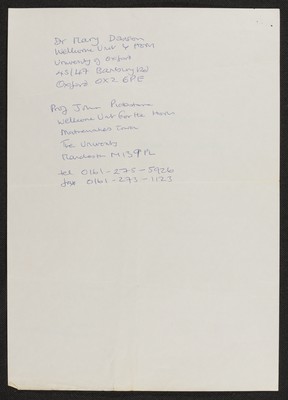 Dr Mary Dobson
Wellcome Unit
University of Oxford
45/47 Banbury Rd
Oxford OX2 6PE
Prof John Pickstone
Wellcome Unit for the
Mathematics Tower
The University
Manchester M13 9PL
tel 0161-275-5926
fax 0161-275-1123